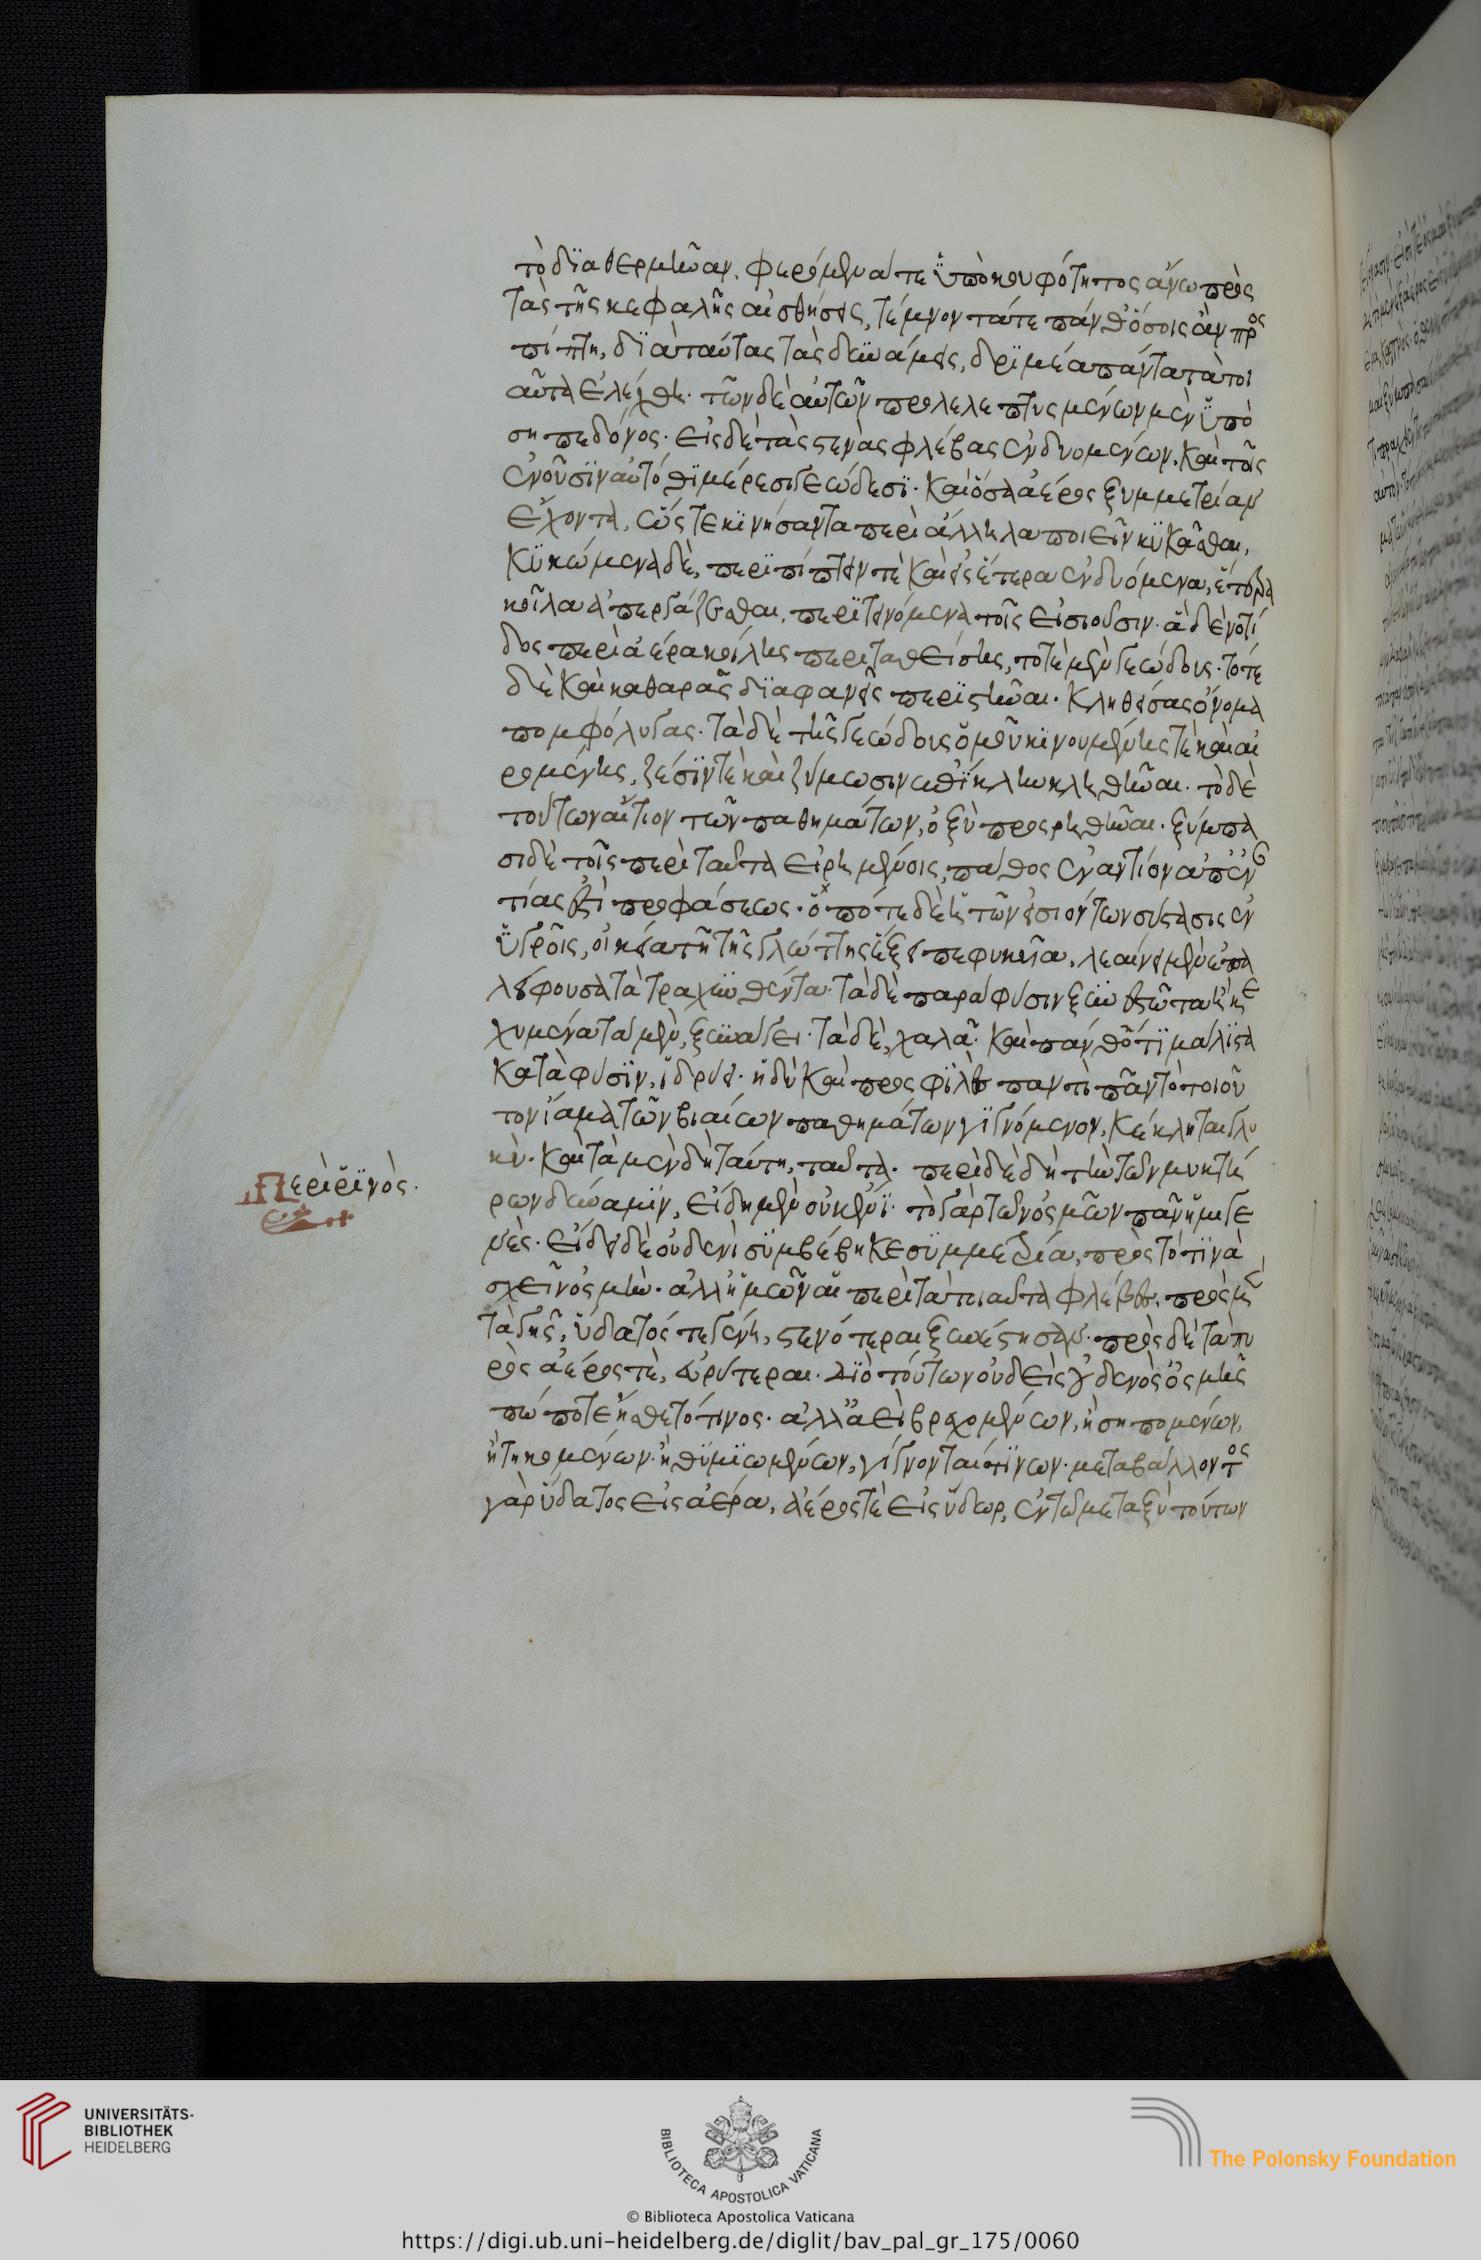 τὸ διαθερμῆναν. φερόμενα τε ὑπὸ κουφότητος ἄνω πρὸς
τὰς τῆς κεφαλῆς αἰσθήσεις, τέμνοντά τε πάνθ' ὅσοις ἂν προς
πίπτη, διὰ ταύτας τὰς δυνάμεις, δριμέα πάντα τὰ τοι
αῦτα ἐλέχθη. τῶν δὲ αὐτῶν προλελεπτυσμένων μὲν ὑπὸ
σηπεδόνος. εἰς δὲ τὰς στενὰς φλέβας ἐνδυομένων. καὶ τοῖς
ἐνοῦσιν αὐτόθι μέρεσι γεώδεσι. καὶ ὅσα ἀέρος ξυμμετρίαν
ἔχοντα, ὥστε κινήσαντα περὶ ἄλληλα ποιεῖν κυκᾶσθαι,
κυκώμενα δὲ, περιπίπτειν τὲ καὶ εἰς ἕτερα ἐνδυόμενα, ἕτερα
κοῖλα ἀπεργάζεσθαι, περιτεινόμενα τοῖς εἰσιοῦσιν. ἃ δὲ νοτί
δος περὶ ἀέρα κοίλης περιταθείσης, τοτὲ μὲν γεώδους. τοτὲ
δὲ καὶ καθαρᾶς διαφανεῖς περιστῆναι. κληθείσας ὄνομα
πομφόλυγας. τὰ δὲ τῆς γεώδους ὁμοῦ κινουμένης τὲ καὶ αἰ
ρομένης, ζέσιν τὲ καὶ ζύμωσιν ἐπίκλην κληθῆναι. τὸ δὲ
τούτων αἴτιον τῶν παθημάτων, ὀξὺ προσρηθῆναι. ξύμπα
σι δὲ τοῖς περὶ ταῦτα εἰρημένοις, πάθος ἐναντίον ἀπ' ἐναν
τίας ἐστὶ προφάσεως. ὁπότε δὲ ἡ τῶν εἰσιόντων σύστασις ἐν
ὑγροῖς, οἰκεία τῆ τῆς γλώττης ἕξει πεφυκυῖα, λεαίνει μὲν ἐπα
λείφουσα τὰ τραχυνθέντα. τὰ δὲ παρὰ φύσιν ξυνεστῶτα ἢ κε
χυμένα τὰ μὲν, ξυνάγει. τὰ δὲ, χαλᾶ. καὶ πάνθ' ὅτι μάλιστα
κατὰ φύσιν, ἱδρύει. ἡδὺ καὶ προσφιλὲς παντὶ πᾶν τὸ τοιοῦ
τον ἴαμα τῶν βιαίων παθημάτων γιγνόμενον, κέκληται γλυ
κύ. καὶ τὰ μὲν δὴ ταύτη, ταῦτα. περὶ δὲ δὴ τὴν τῶν μυκτή
Περὶ ῥινὸς.
ρων δύναμιν, εἴδη μὲν οὐκ ἔνι. τὸ γὰρ τῶν ὀσμῶν πᾶν ἡμιγε
νές. εἴδει δὲ οὐδενὶ συμβέβηκε συμμετρία, πρὸς τό τινὰ
σχεῖν ὀσμὴν. ἀλλ' ἡμῶν αἱ περὶ τὰ τοιαῦτα φλέβες, πρὸς μὲν
τὰ γῆς, ὕδατός τε γένη, στενότεραι ξυνέστησαν. πρὸς δὲ τὰ πυ
ρὸς ἀέρος τὲ, εὐρύτεραι. διὸ τούτων οὐδεὶς οὐδενὸς ὀσμῆς
πώποτε ἤσθετό τινος. ἀλλ' ἀεὶ βρεχομένων, ἢ σηπομένων,
ἢ τηκομένων. ἢ θυμιωμένων, γίγνονταί τινων. μεταβάλλοντος
γὰρ ὕδατος εἰς ἀέρα, ἀέρος τὲ εἰς ὕδωρ, ἐν τῶ μεταξὺ τούτων
UNIVERSITÄTS-
BIBLIOTHEK
HEIDELBERG
BIBLIOTECA APOSTOLICA VATICANA
The Polonsky Foundation
© Biblioteca Apostolica Vaticana
https://digi.ub.uni-heidelberg.de/diglit/bav_pal_gr_175/0060